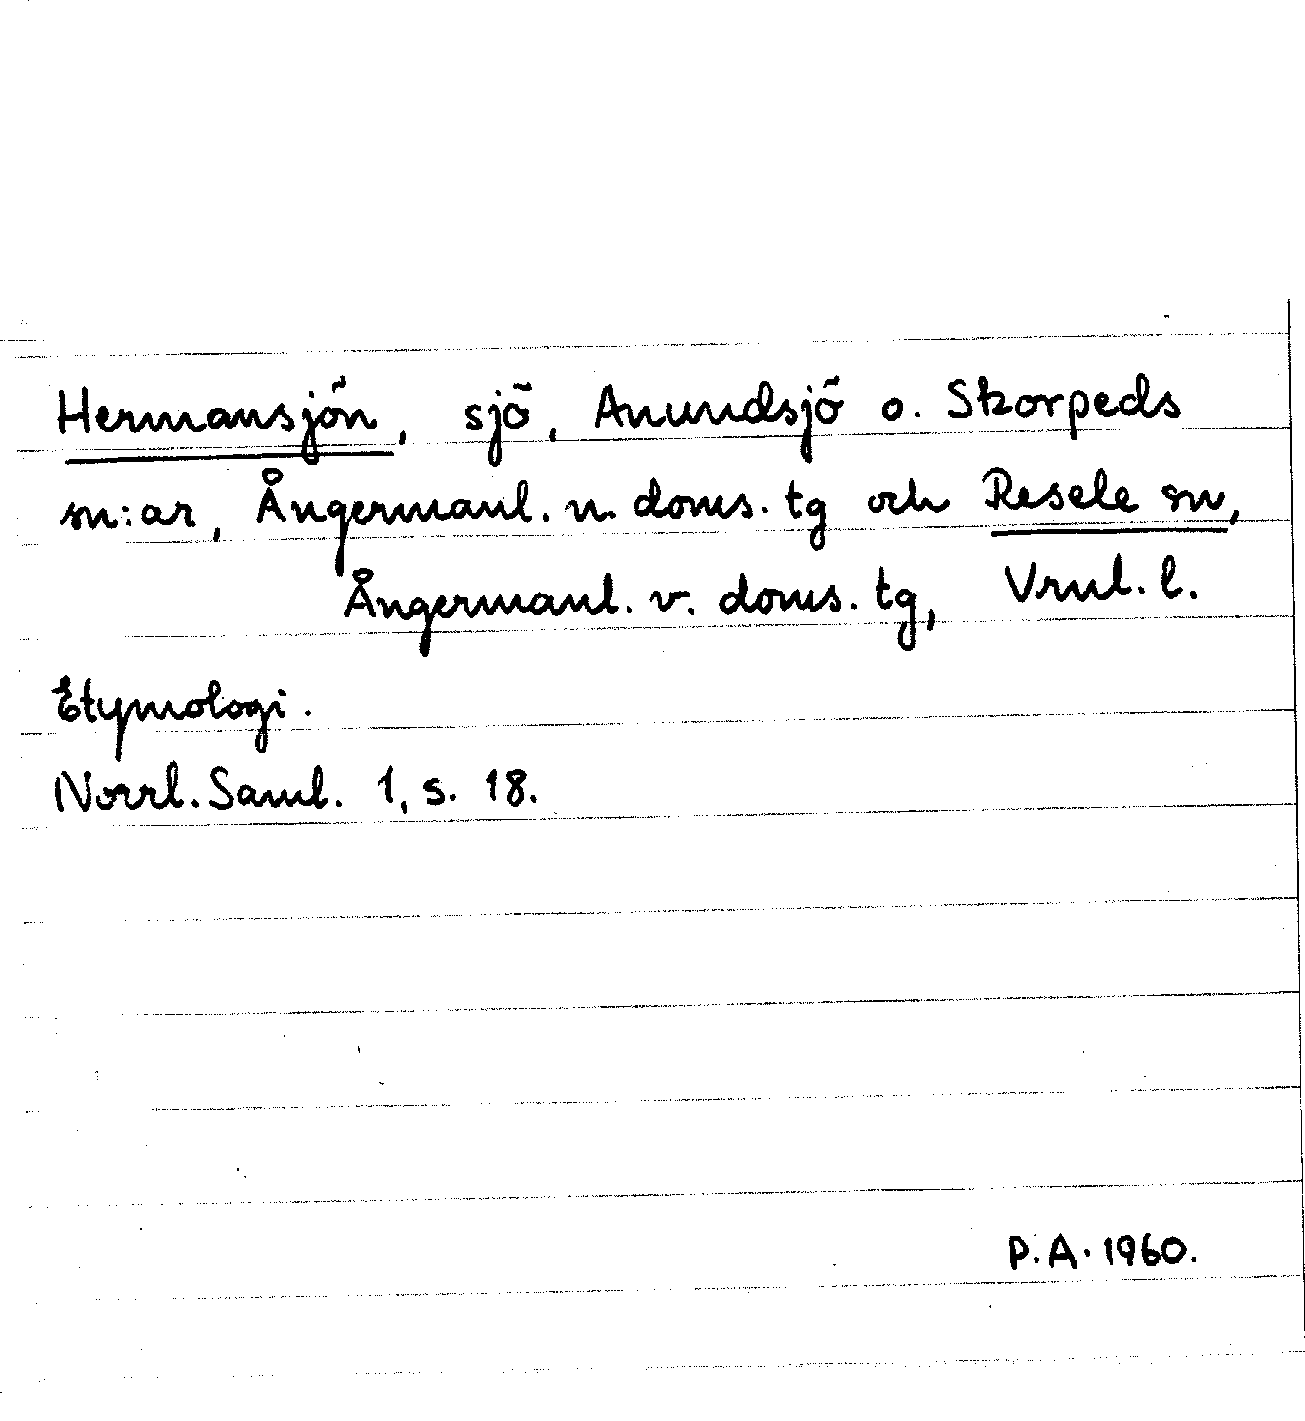 Hermansjön, sjö, Anundsjö o. Skorpeds
sn:ar, Ångermanl. n. doms. tg och Resele sn,
Ångermanl. v. doms. tg, Vrnl. l.
Etymologi.
Norrl. Saml. 1, s. 18.
P.A. 1960.